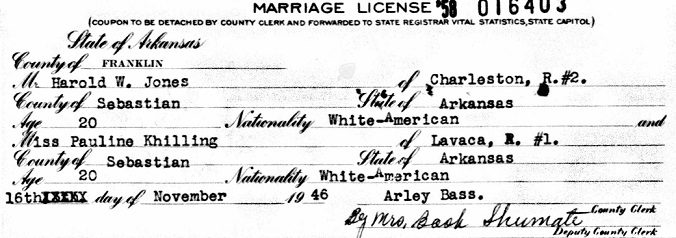 MARRIAGE LICENSE '58 016403
(COUPON TO BE DETACHED BY COUNTY CLERK AND FORWARDED TO STATE REGISTRAR VITAL STATISTICS, STATE CAPITOL)
State of Arkansas
County of FRANKLIN
Mr. Harold W. Jones of Charleston, R.#2.
County of Sebastian State of Arkansas
Age 20 Nationality White-American and
Miss Pauline Khilling of Lavaca, R. #1.
County of Sebastian State of Arkansas
Age 20 Nationality White-American
16th day of November 1946 Arley Bass.
County Clerk
By Mrs. Bash Shumate
Deputy County Clerk